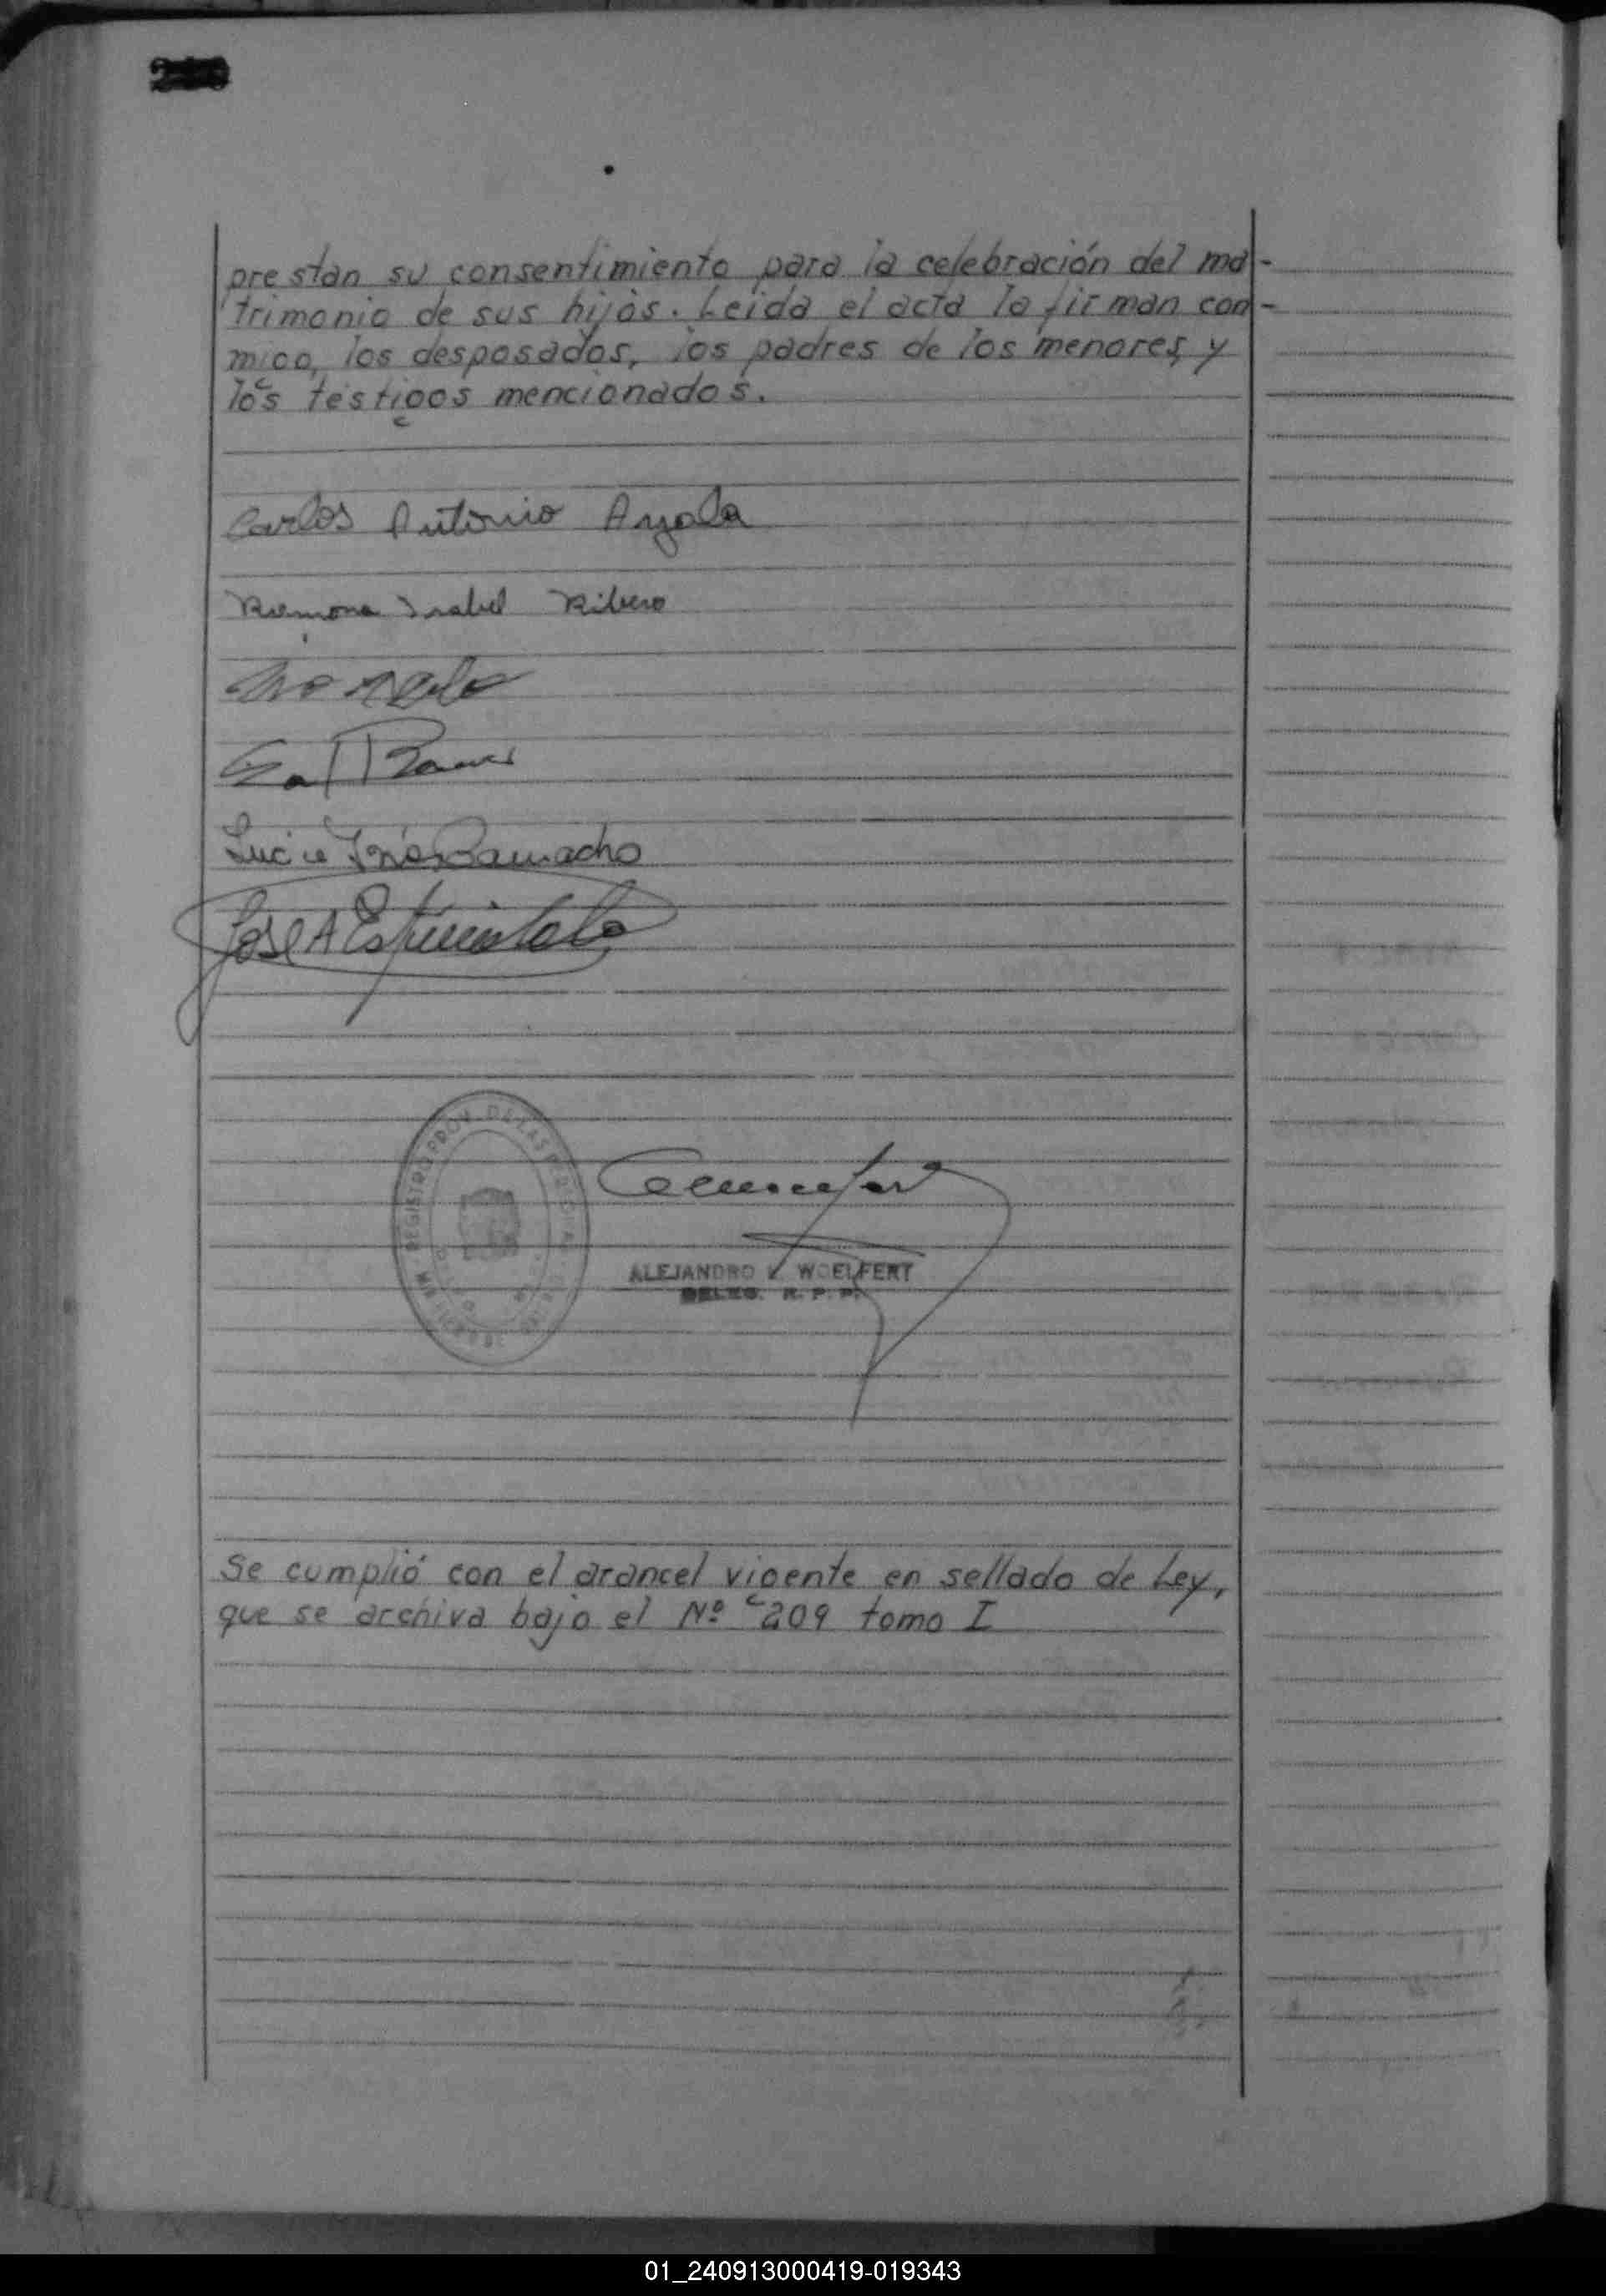 prestan su consentimiento para la celebración del ma-
trimonio de sus hijos. Leida el acta la firman con-
migo, los desposados, los padres de los menores, y
los testigos mencionados.
Carlos Antonio Ayala
Ramona Isabel Ribero
Lucia Inés Camacho
José A
REGISTRO PROV. DE LAS PERSONAS
ALEJANDRO WOELFERT
DELEG. R. P. P.
Se cumplió con el arancel vigente en sellado de Ley,
que se archiva bajo el Nº 209 tomo I
01_240913000419-019343